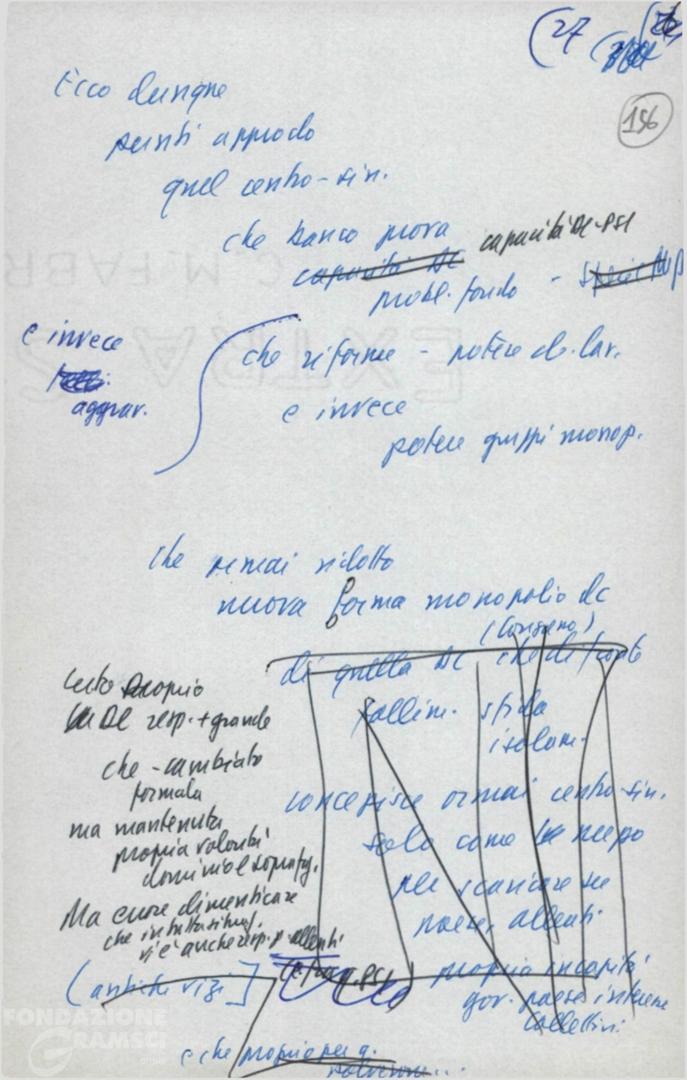 (27
156
Ecco dunque
punti approdo
quel centro-sin.
che banco prova capacità DC-PSI
capacità DC
probl. fondo -
e invece
aggrav.
che riforme - potere cl. lav.
e invece
potere gruppi monop.
che ormai ridotto
nuova forma monopolio DC
di quella DC che di fronte
fallim. sfida
isolam.
concepisce ormai centro-sin.
solo come mezzo
per scaricare su
paesi, alleati
propria incapità
gov. paese insieme
collettivi
certo proprio
DC resp. + grande
che - cambiato
formula
ma mantenuta
propria volontà
dominio e sopraf.
Ma error dimenticare
che in tutta situaz.
vi è anche resp. p. alleati
(antichi vizi]
PSI
e che proprio per q.
FONDAZIONE
GRAMSCI